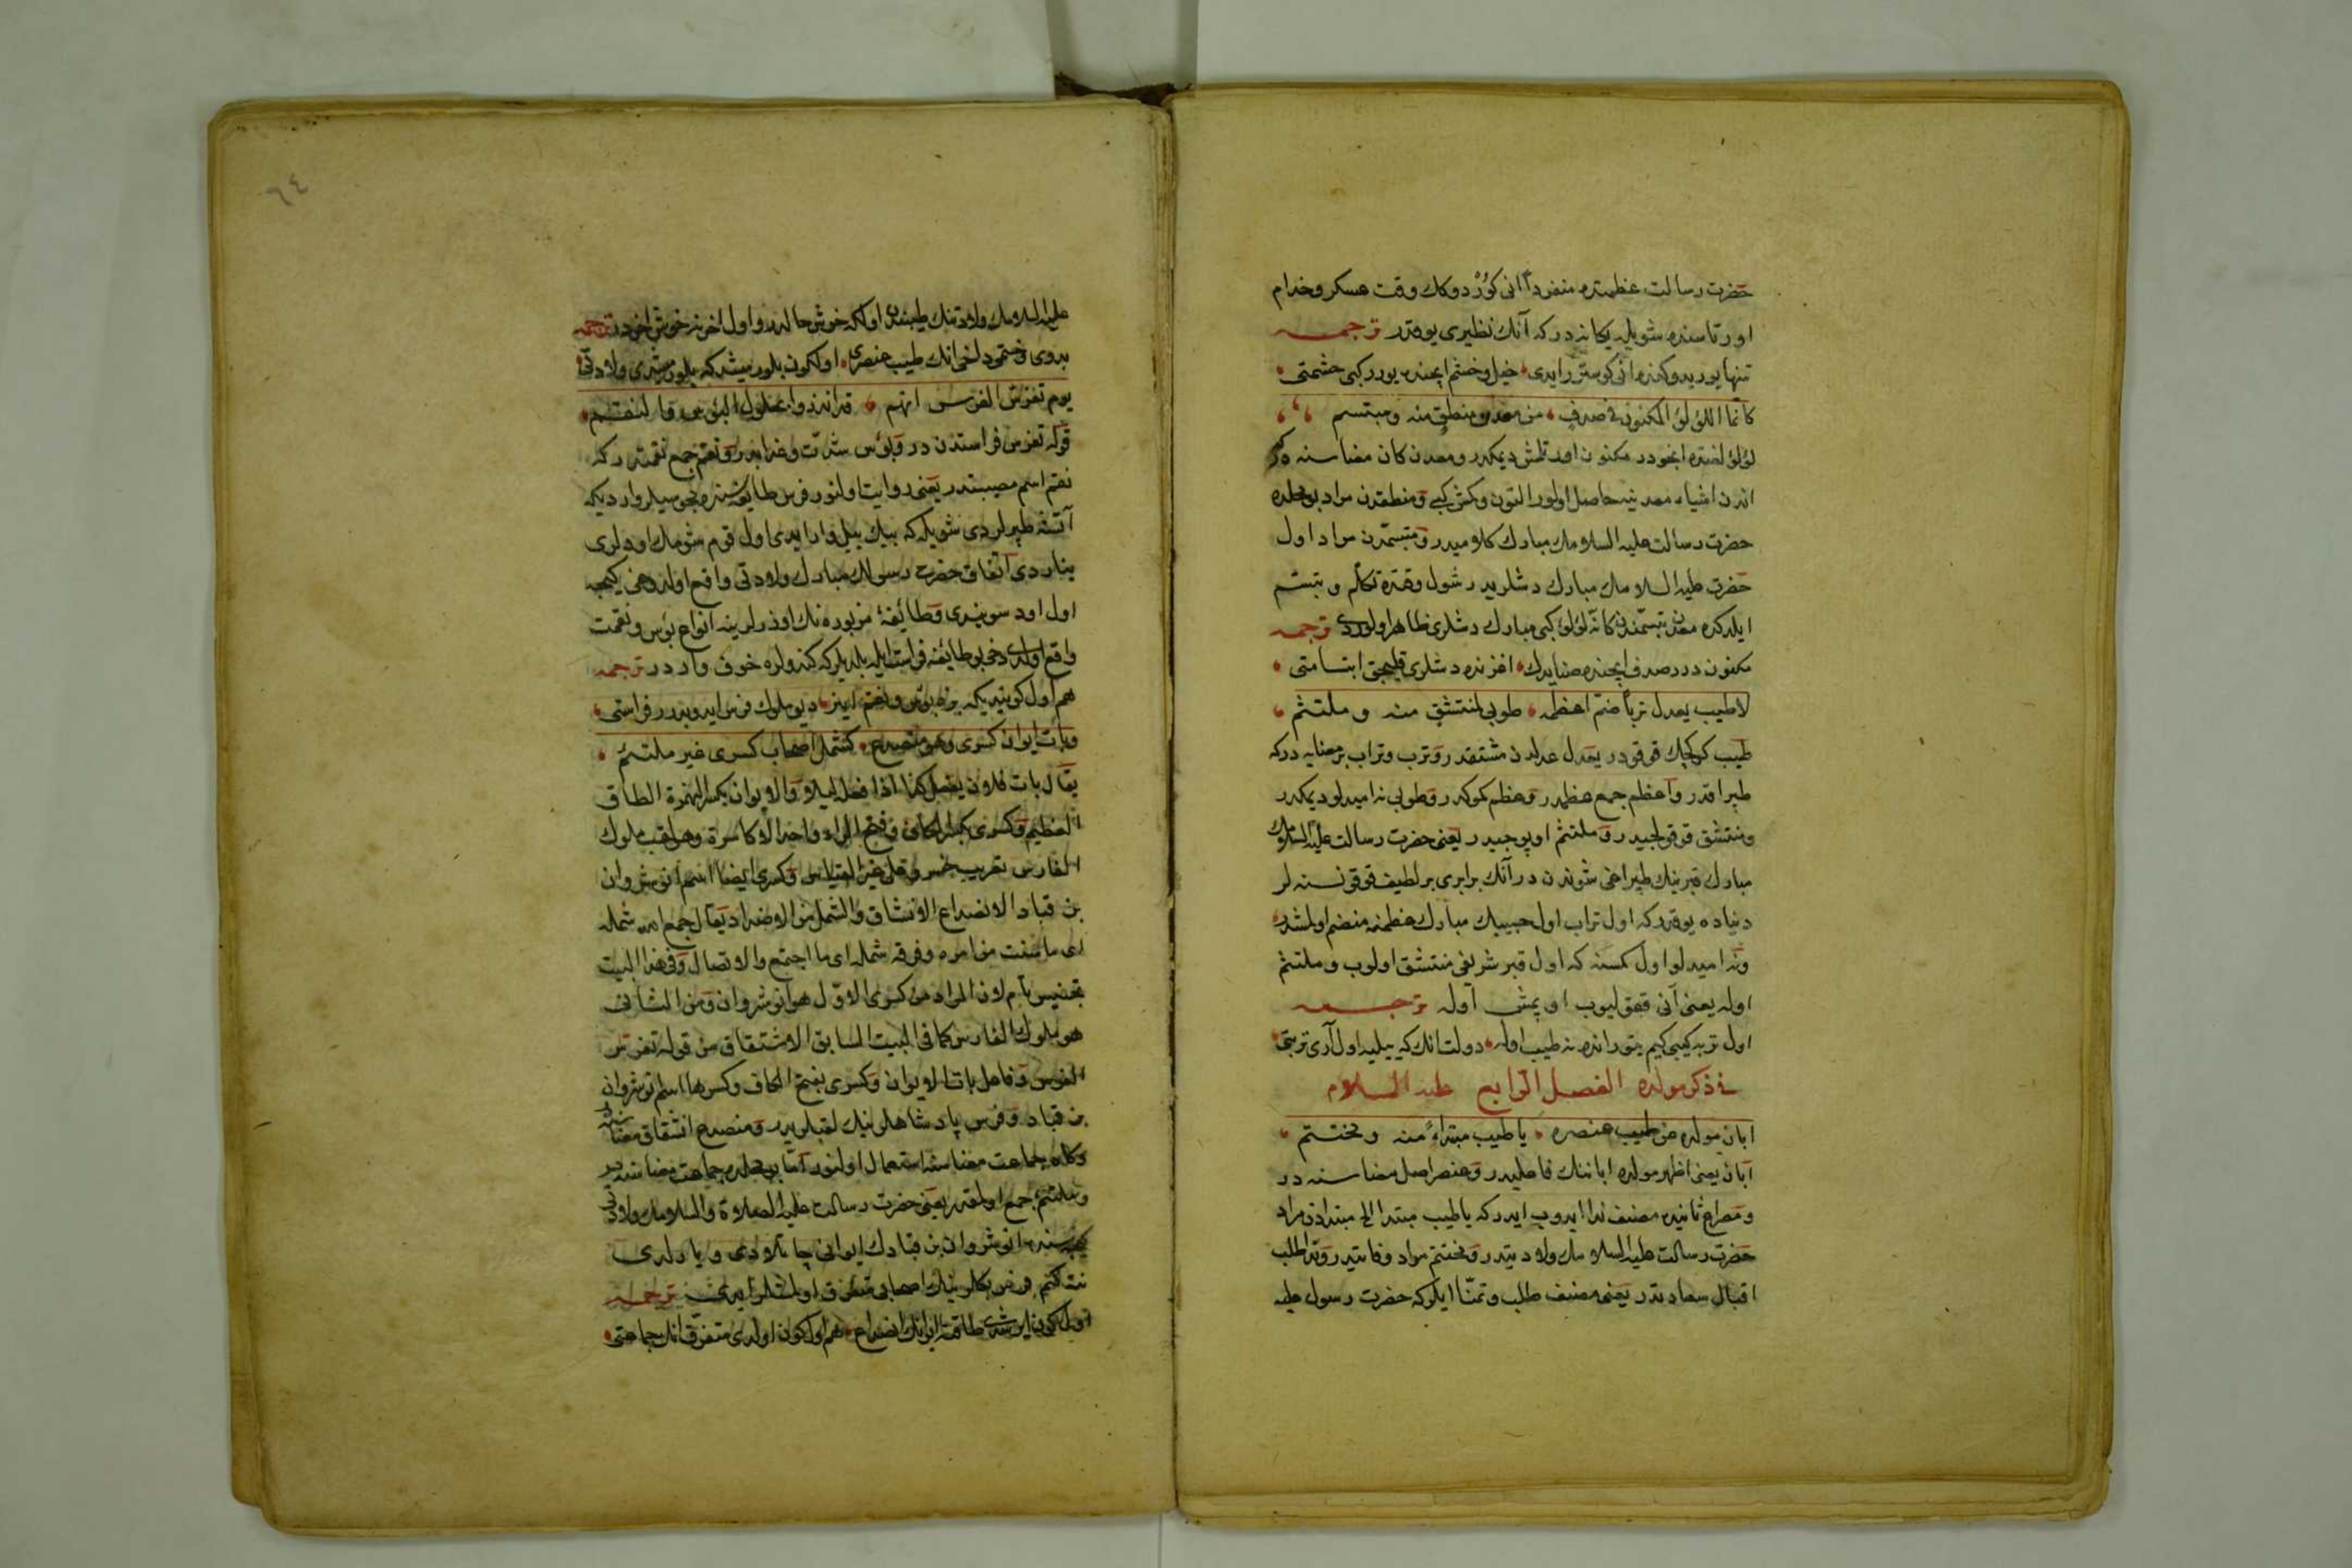 حضرت رسالت عظمتده منفرداً انی کوردوکك وقت عسکر و خدام
اورتاسنده شویله یکانه در که آنك نظیری یوقدر ترجمه
تنها یوریدوکنده انی کوسترر ایدی خیل و خشم ایچنده یورر کبی حشمتی
كأنما اللؤلؤ المكنون في صدف من معدني منطق منه ومبتسم
لؤلؤ لغتده انجودر مکنون اورتلمش دیمکدر و معدن کان معناسنه در
اندن اشیاء معدنیه حاصل اولور التون و کمش کبی و منطقدن مراد بو محلده
حضرت رسالت علیه السلامك مبارك کلامیدر و مبتسمدن مراد اول
حضرت علیه السلامك مبارك دشلریدر شول وقتده تکلم و تبسم
ایلدکده معدن تبسمندن کانه لؤلؤ کبی مبارك دشلری ظاهر اولوردی ترجمه
مکنون در در صدف ایچنده صنایدك اغزنده دشلری قلیجق ابتسامتی
لا طيب يعدل تربا ضم اعظمه طوبى لمنتشق منه وملتثم
طیب کوکچك قوقودر یعدل عدلدن مشتقدر و ترب و تراب بر معنایه در که
طپراقدر و اعظم جمع عظمدر و عظم کموکدر و طوبی نه امیدلو دیمکدر
و منتشق قوقولیجیدر و ملتثم اوپوجیدر یعنی حضرت رسالت علیه السلامك
مبارك قبرینك طپراغی شوندن در آنك برابری بر لطیف قوقو نسنه لر
دنیاده یوقدر که اول تراب اول حبیبك مبارك عظمنه منضم اولمشدر
و نه امیدلو اول کمسنه که اول قبر شریفی منتشق اولوب و ملتثم
اوله یعنی آنی قوقولیوب اوپمش اوله ترجمه
اول تربه کبی کیم یتورانده نه طیب اوله دولت انك که ییلیه اول آری تربتی
الفصل الرابع في ذكر مولده عليه السلام
ابان مولده عن طيب عنصره يا طيب مبتداء منه ومختتم
ابان یعنی اظهر مولده اباننك فاعلیدر و عنصر اصل معناسنه در
و مصراع ثانیده مصنف ندا ایدوب ایدر که یا طیب مبتدا الخ مبتدادن مراد
حضرت رسالت علیه السلامك ولادتیدر و مختتم مراد وفاتیدر و ندا لطلب
اقبال سعادتدر یعنی مصنف طلب و تمنا ایلر که حضرت رسول علیه
علیه السلامك ولادتنك طیبندن اولکه خوش حالدر و اول اخرنه خوش اخردر ترجمه
بدوی و ختمی دلخی انك طیب عنصری اولکون بلورمیشدر که بلورمشدی ولادتی
يوم تفرس الفرس انهم قد انذروا بحلول البؤس والنقم
قوله تفرس فراستدن در و بؤس شدت و عذابدر و نقم جمع نقمتدر که
نقم اسم مصیبتدر یعنی روایت اولنور فرس طایفه سنده مجوسیلر وار دیکه
آتشه طپرلردی شویله که بیك ییل وار ایدی اول قوم شومك اودلری
یناردی اتفاق حضرت رسولك مبارك ولادتی واقع اولدوغی کیجه
اول اود سویندی و طائفهٔ مزبوره نك اوزرلرینه انواع بؤس و نقمت
واقع اولدی دخی بو طائفه فراست ایله بلدیلر که کندولره خوف وار در ترجمه
هم اول کون بیدیکه بزه بؤس و نقم اینر دیو ملوك فرس ایدوبدرر فراستی
وبات ايوان كسرى وهو منصدع كشمل اصحاب كسرى غير ملتئم
يقال بات فلان يفعل كذا اذا فعله ليلا والايوان بكسر الهمزة الطاق
العظيم وكسرى بكسر الكاف وفتح الراء واحد الاكاسرة وهو لقب ملوك
الفارس تعريب خسرو على غير القياس وكسرى ايضا اسم انوشروان
بن قباد الانصداع الانشقاق والشمل من الاضداد يقال جمع الله شمله
اى ما تشتت من امره وفرق شمله اى ما اجتمع والاتصال وفي هذا البيت
تجنيس تام لان المراد من كسرى الاول هو انوشروان ومن الثانى
هو ملوك الفارس كما في البيت السابق الاشتقاق من قوله تفرس
الفرس وفاعل بات الايوان وكسرى بفتح الكاف وكسرها اسم انوشروان
بن قباد و فرس پادشاهلرینك لقبلریدر و منصدع انشقاق معناسنه در
و کاه جماعت معناسنه استعمال اولنور اما بو محلده جماعت معناسنه در
و ملتئم جمع اولمقدر یعنی حضرت رسالت علیه الصلاة والسلامك ولادتی
کیجه سنده انوشروان بن قبادك ایوانی چاتلادی و یارلدی
نته کیم فرس بکلرینك اصحابی متفرق اولمشلر ایدی ترجمه
اول کون ایرشدی طاقنه ایوانك انصداع هم اول کون اولدی متفرق انك جماعتی